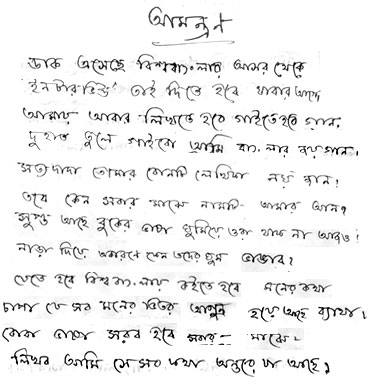 আমন্ত্রণ
ডাক এসেছে বিশ্ববাংলার আসর থেকে
ইন্টারভিউ তাই দিতে হবে যাবার আগে
আমায় আবার লিখতে হবে গাইতে হবে গান,
দুহাত তুলে গাইবো আমি বাংলার জয়গান।
সত্যদাদা তোমার বোনটি লেখিকা নয় ম্লান।
তবে কেন সবার মাঝে নামটি আমার আন?
সুপ্ত আছে বুকের ভাষা ঘুমিয়ে ওরা থাক না আরও।
নাড়া দিয়ে অকারণে কেন ওদের ঘুম ভাঙার।
যেতে হবে বিশ্ববাংলায় কইতে হবে মনের কথা
চাপা যে সব মনের ভিতর আগুন হয়ে আছে ব্যাথা।
বোবা ভাষা সরব হবে সবার মাঝে।
লিখব আমি সে সব কথা অন্তরে যা আছে।